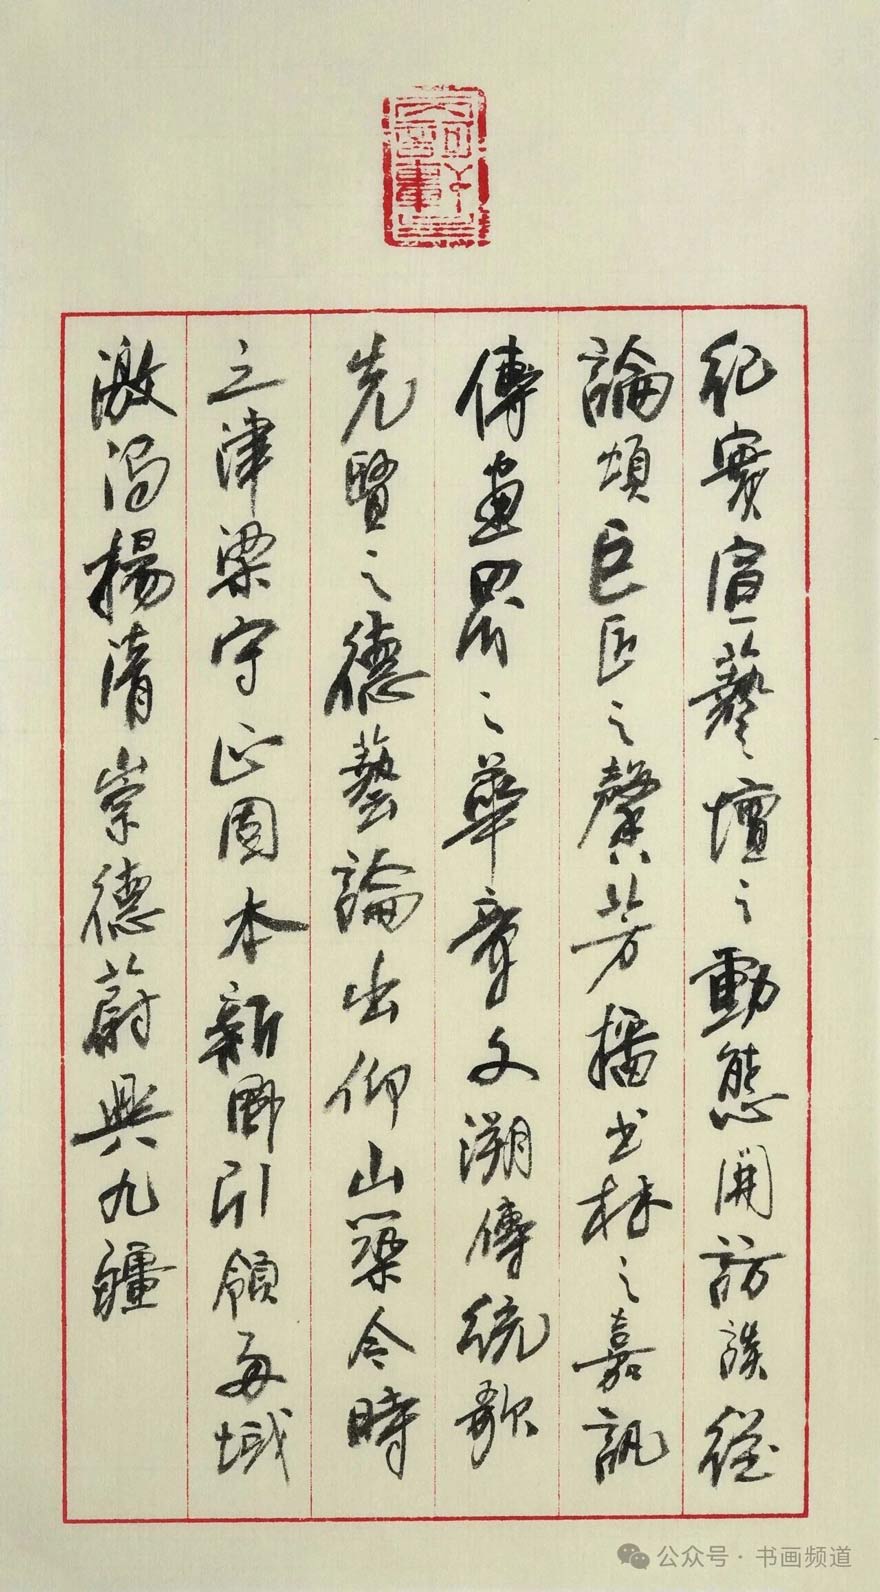 紀實宣藝壇之動態開訪談從
論頌巨匠之馨芳播书林之嘉訊
傳畫界之華章文溯傳統歌
先賢之德藝論出仰山築今時
之津梁守正固本新風引領每域
激濁揚清崇德蔚興九疆
公众号·书画频道